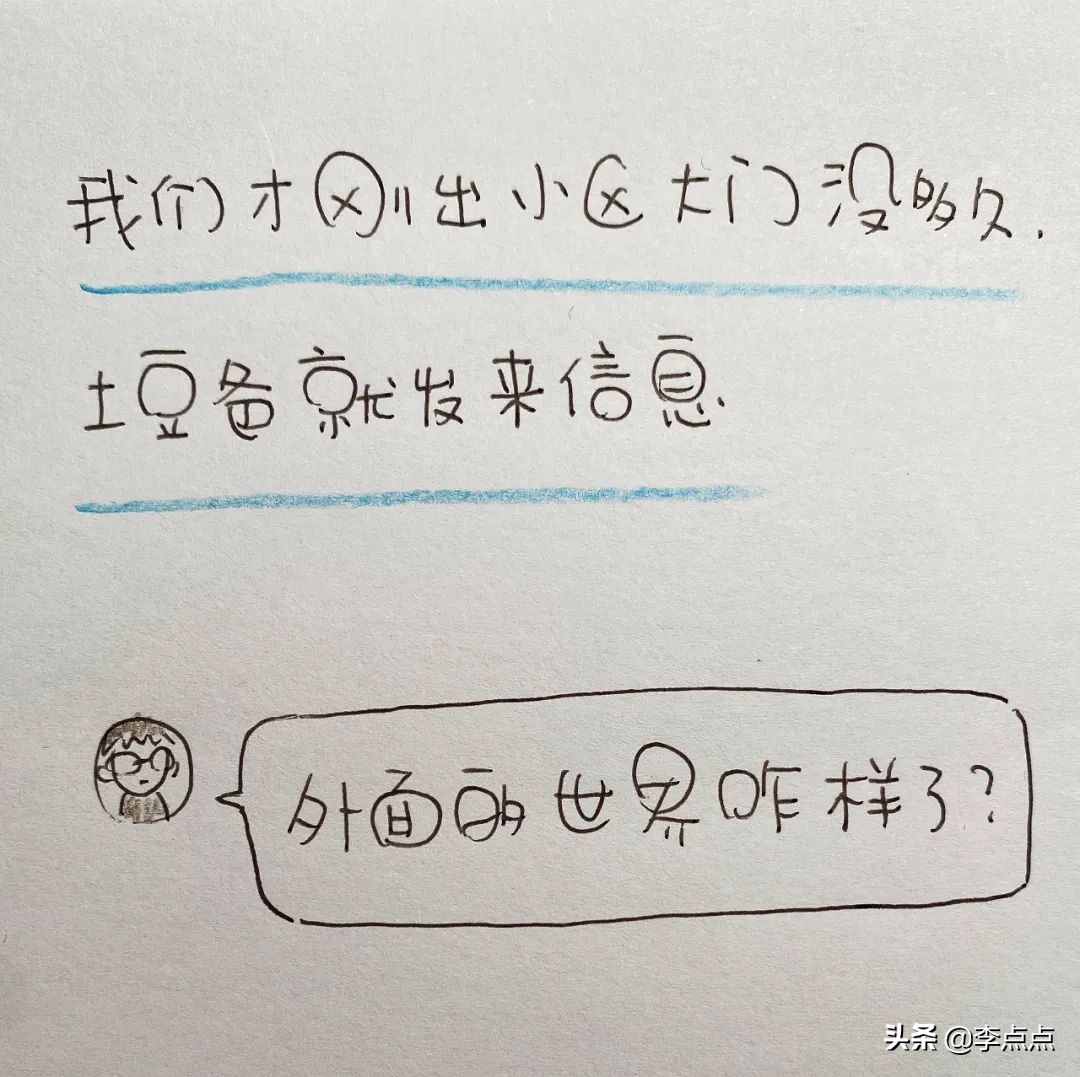 我们才刚出小区大门没多久.
土豆爸就发来信息.
外面的世界咋样了?
头条 @李点点